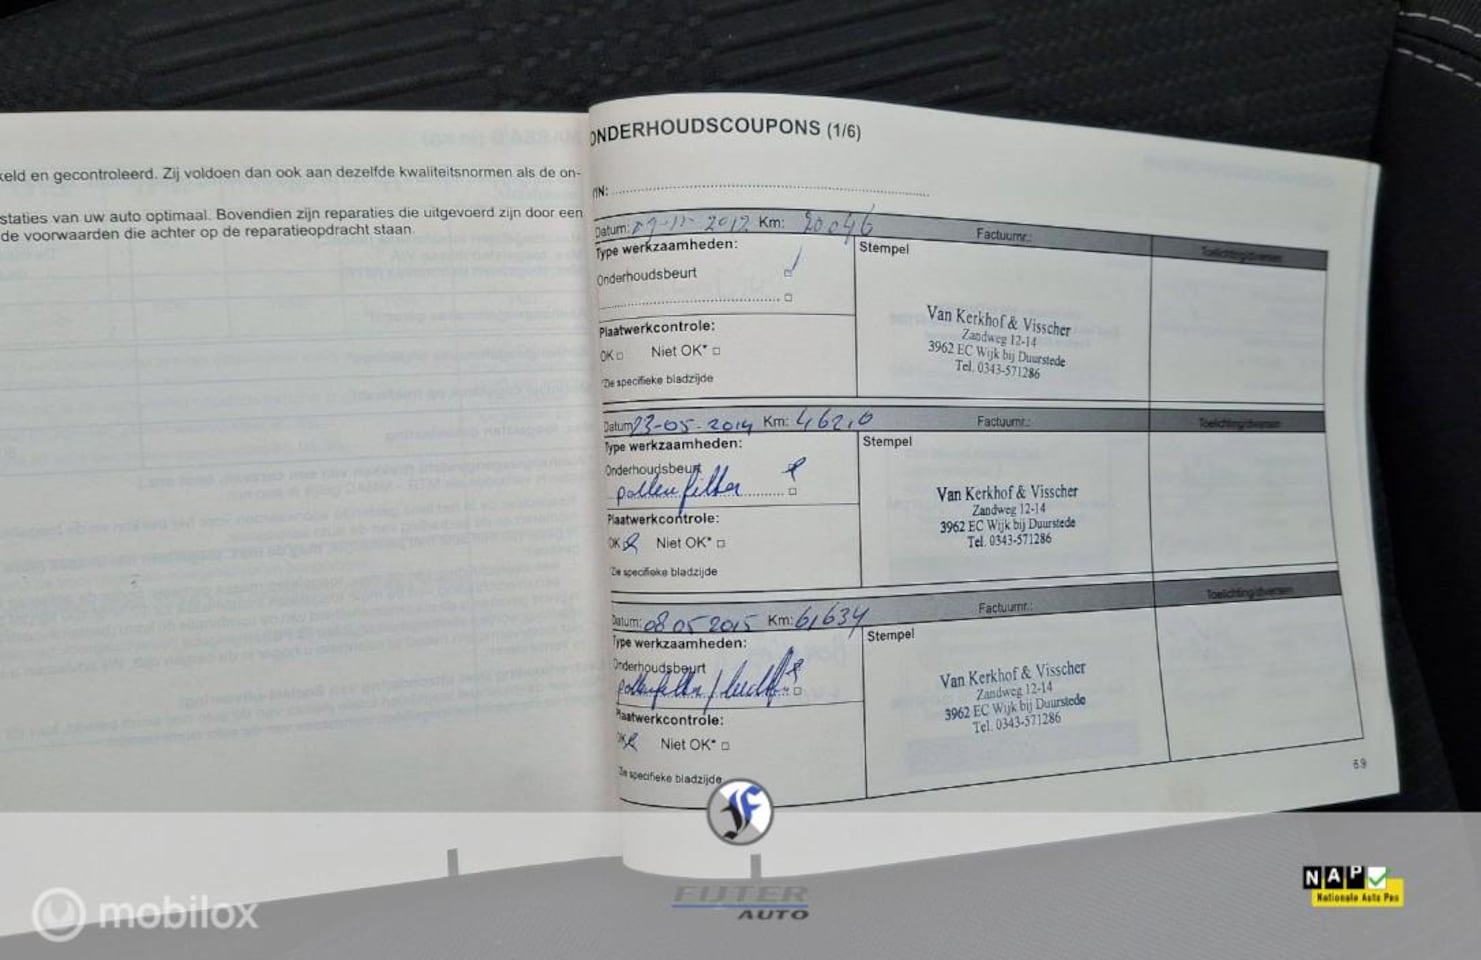 keld en gecontroleerd. Zij voldoen dan ook aan dezelfde kwaliteitsnormen als de on-
staties van uw auto optimaal. Bovendien zijn reparaties die uitgevoerd zijn door een
de voorwaarden die achter op de reparatieopdracht staan.
ONDERHOUDSCOUPONS (1/6)
VIN:
Datum: 29-11-2012 Km: 20046 Factuurnr.: Toelichting/diversen
Type werkzaamheden: Stempel
Onderhoudsbeurt
Plaatwerkcontrole:
OK □ Niet OK* □
*Zie specifieke bladzijde
Van Kerkhof & Visscher
Zandweg 12-14
3962 EC Wijk bij Duurstede
Tel. 0343-571286
Datum: 23-05-2014 Km: Factuurnr.: Toelichting/diversen
Type werkzaamheden: Stempel
Onderhoudsbeurt
pollenfilter
Plaatwerkcontrole:
OK Niet OK* □
*Zie specifieke bladzijde
Van Kerkhof & Visscher
Zandweg 12-14
3962 EC Wijk bij Duurstede
Tel. 0343-571286
Datum: 08 05 2015 Km: 61,634 Factuurnr.: Toelichting/diversen
Type werkzaamheden: Stempel
Onderhoudsbeurt
pollenfilter / lucht
Plaatwerkcontrole:
OK Niet OK* □
*Zie specifieke bladzijde
Van Kerkhof & Visscher
Zandweg 12-14
3962 EC Wijk bij Duurstede
Tel. 0343-571286
69
mobilox
FIJTER
AUTO
NAP
Nationale Auto Pas